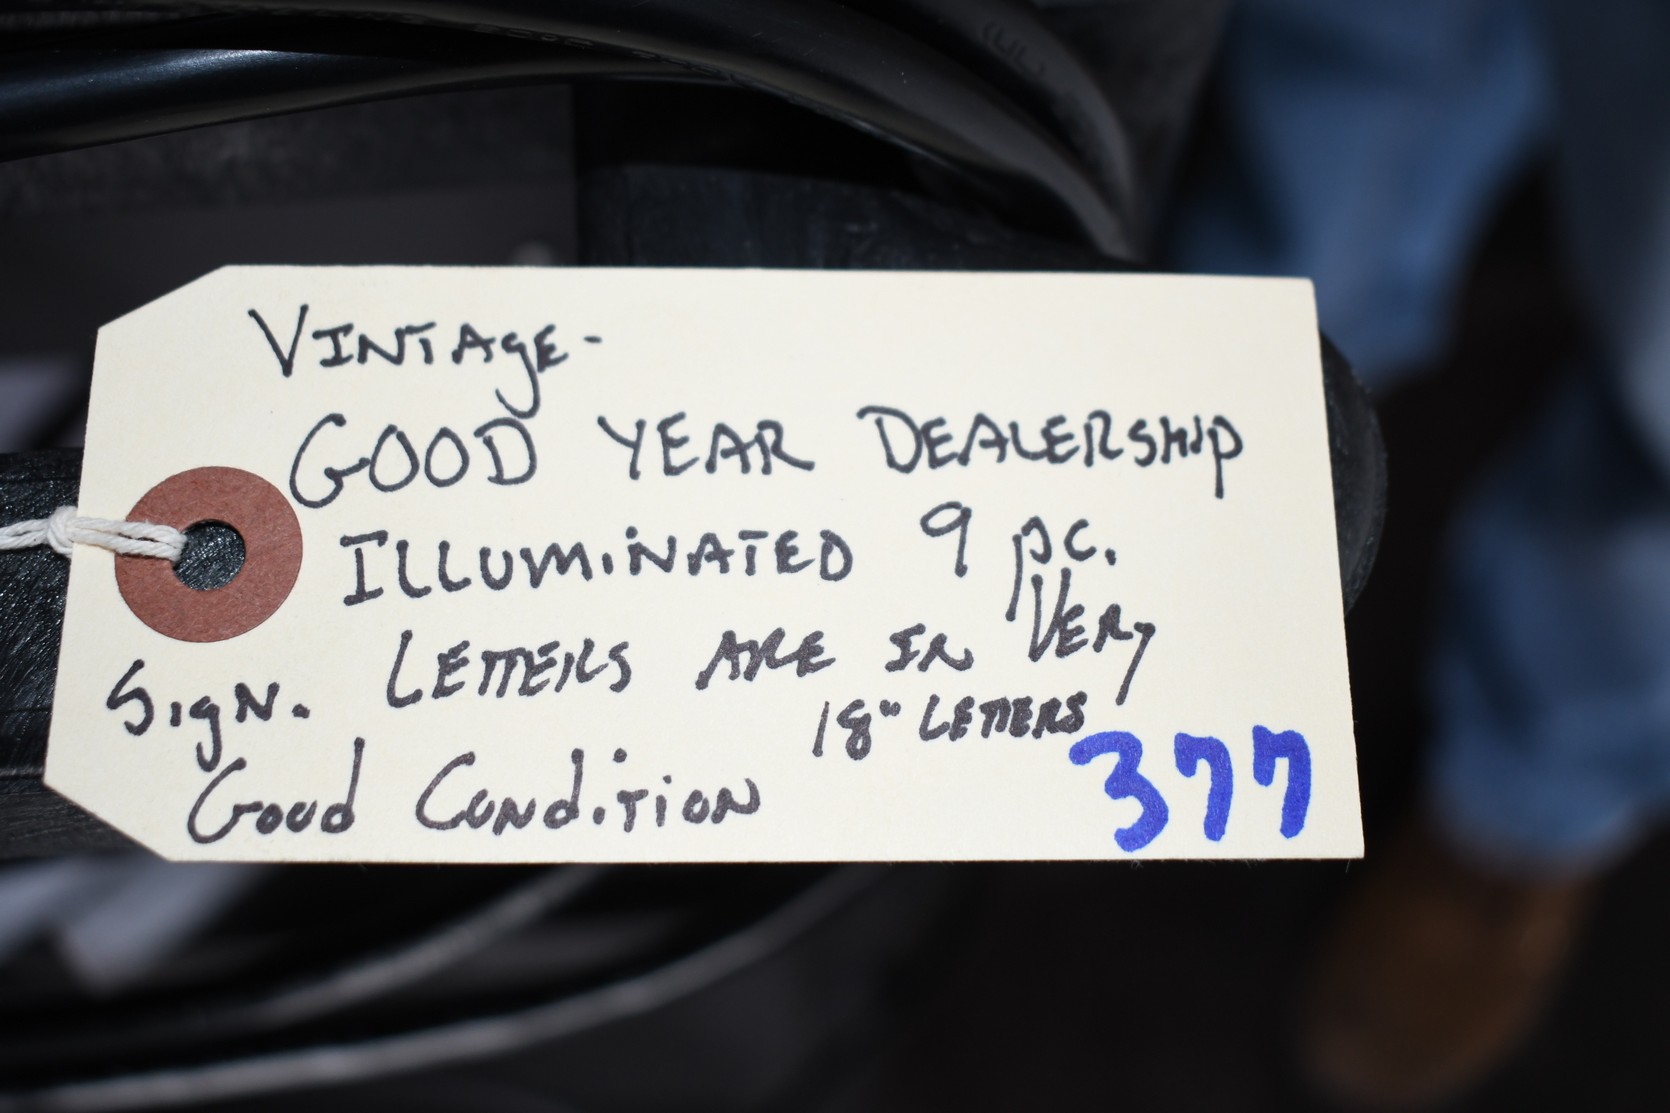 VINTAge-
GOOD YEAR DEALERSHIP
ILLUMINATED 9 pc.
SigN. LETTERS ARE IN VERy
18" LETTERS
Good CONdiTION
377
(UL)